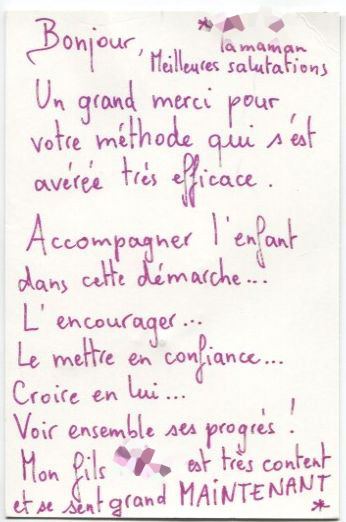 Bonjour,
* la maman
Meilleures salutations
Un grand merci pour
votre méthode qui s'est
avérée très efficace.
Accompagner l'enfant
dans cette démarche...
L'encourager...
Le mettre en confiance...
Croire en lui...
Voir ensemble ses progrès !
Mon fils est très content
et se sent grand MAINTENANT
*